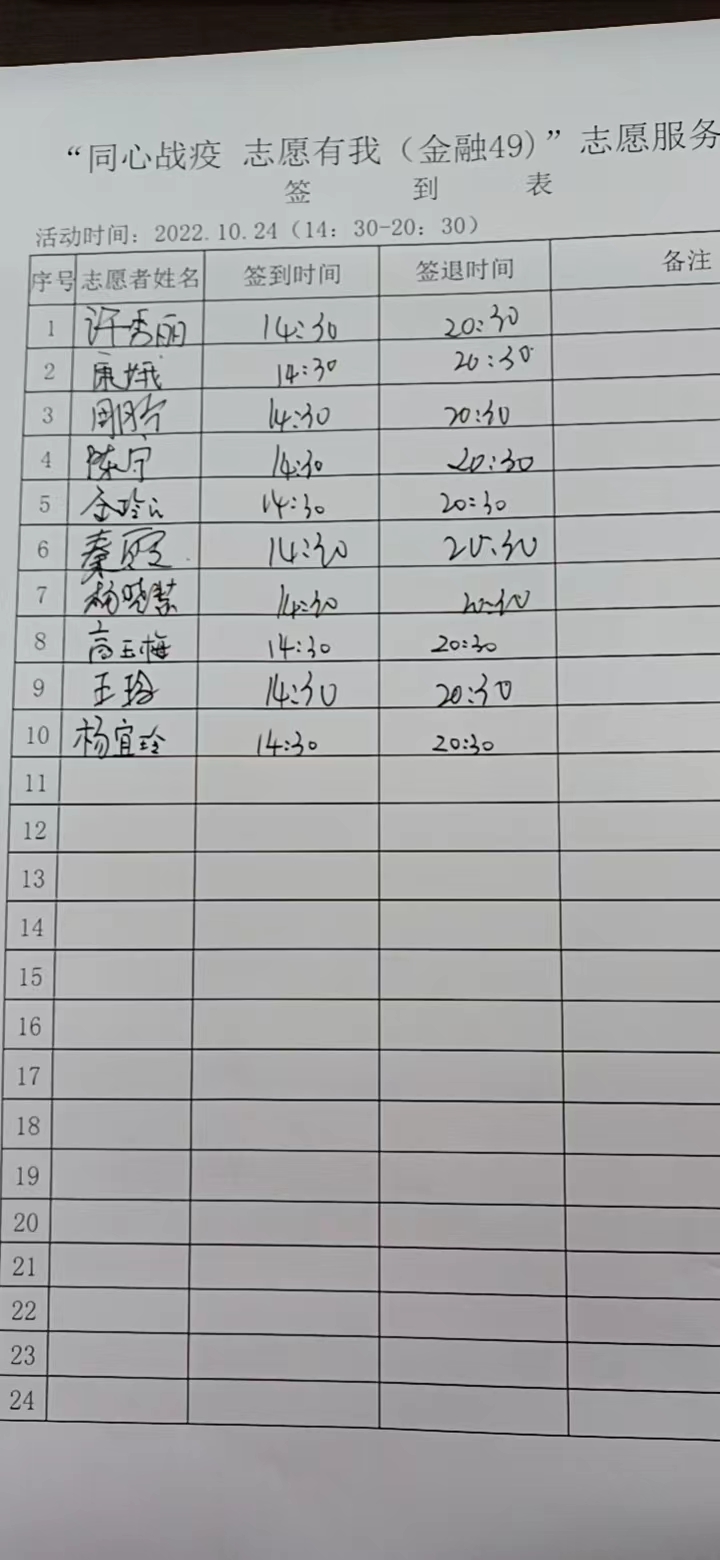 “同心战疫 志愿有我（金融49)”志愿服务
签 到 表
活动时间：2022.10.24（14：30-20：30）
序号 志愿者姓名 签到时间 签退时间 备注
1 许秀丽 14:30 20:30
2 康娥 14:30 20:30
3 14:30 20:30
4 陈宁 14:30 20:30
5 14:30 20:30
6 秦霞 14:30 20:30
7 杨晓慧 14:30 20:30
8 高玉梅 14:30 20:30
9 王玲 14:30 20:30
10 杨宜玲 14:30 20:30
11
12
13
14
15
16
17
18
19
20
21
22
23
24